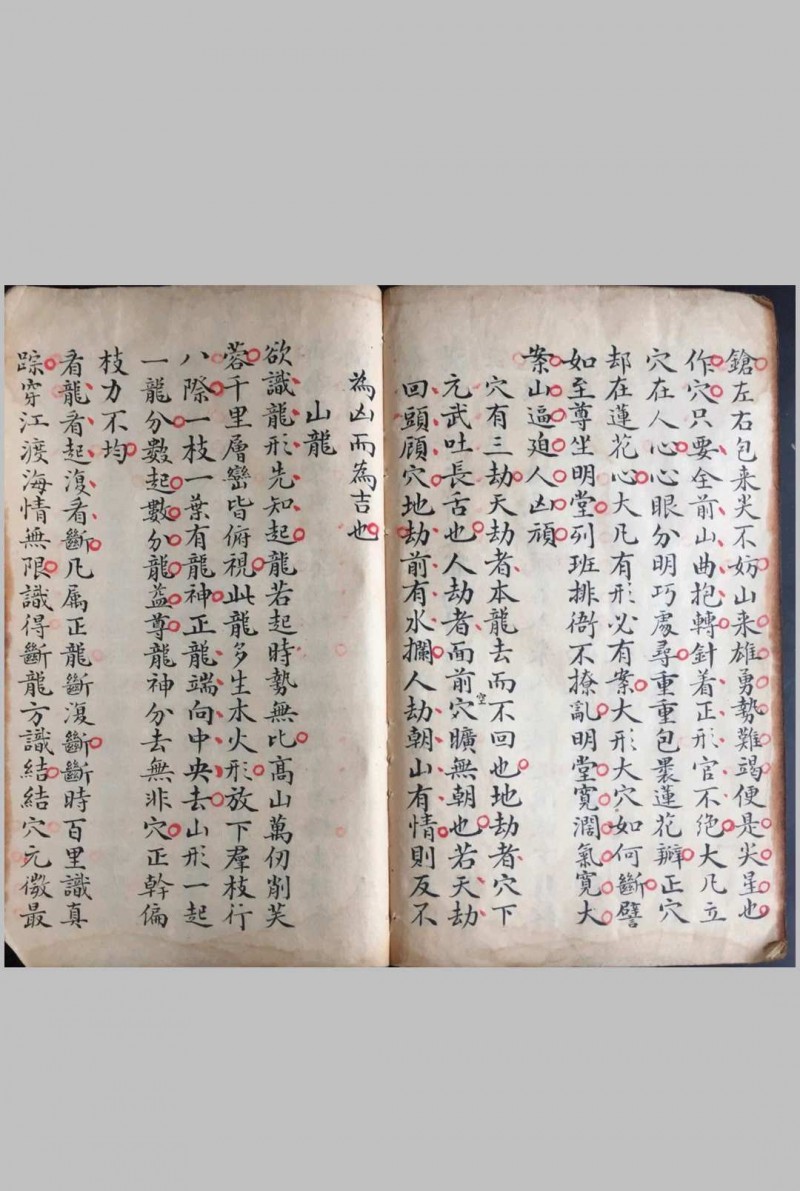 鎗左右包来尖不妨山来雄勇勢難竭便是尖星也
作穴只要全前山曲抱轉針着正形官不絶大凡立
穴在人心心眼分明巧處尋重重包裹蓮花瓣正穴
却在蓮花心大凡有形必有案大形大穴如何斷譬
如至尊坐明堂列班排衙不撩亂明堂寬濶氣寬大
案山逼廹人凶頑
穴有三劫天劫者本龍去而不回也地劫者穴下
元武吐長舌也人劫者面前穴空曠無朝也若天劫
回頭顧穴地劫前有水攔人劫朝山有情則反不
為凶而為吉也
山龍
欲識龍形先知起龍若起時勢無比髙山萬仞削芙
蓉千里層巒皆俯視此龍多生木火形放下羣枝行
八際一枝一葉有龍神正龍端向中央去山形一起
一龍分數起數分龍葢尊龍神分去無非穴正幹偏
枝力不均
看龍看起復看斷凡属正龍斷復斷斷時百里識真
踪穿江渡海情無限識得斷龍方識結結穴元微最